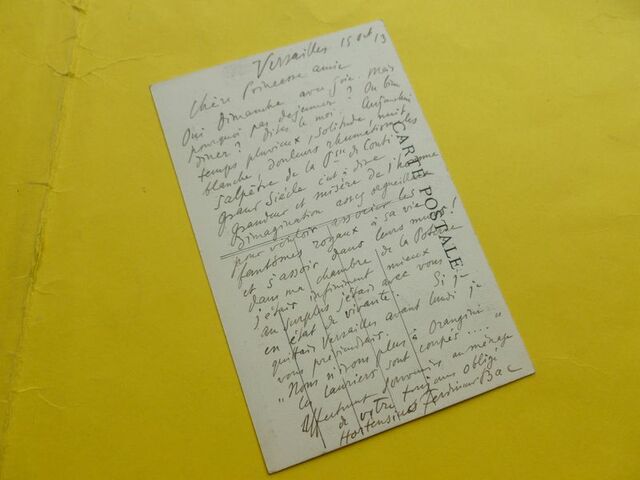 Versailles 15 Oct 13
Chère Princesse amie
Oui Dimanche avec joie. Mais
pourquoi pas dejeuner ? Ou bien
diner ? Dites le moi ! Aujourdhui
temps pluvieux, solitude, nuit
blanche, douleurs rhumatismales
Salpêtre de la Psse de Conti
Grand Siècle c'est à dire
grandeur et misère de l'homme
d'imagination assez orgueilleux
pour vouloir associer les
fantômes royaux à sa vie
et s'assoir dans leurs murs !
dans ma chambre de la Poterie
j'étais infiniment mieux
au surplus j'étais avec vous
en état de vivante. Si je
quittais Versailles avant lundi je
vous préviendrais.
"Nous n'irons plus à Orangini
les lauriers sont coupés...."
Affectueux souvenirs au ménage
de votre toujours obligé
Hortensius Ferdinand Bac
CARTE POSTALE